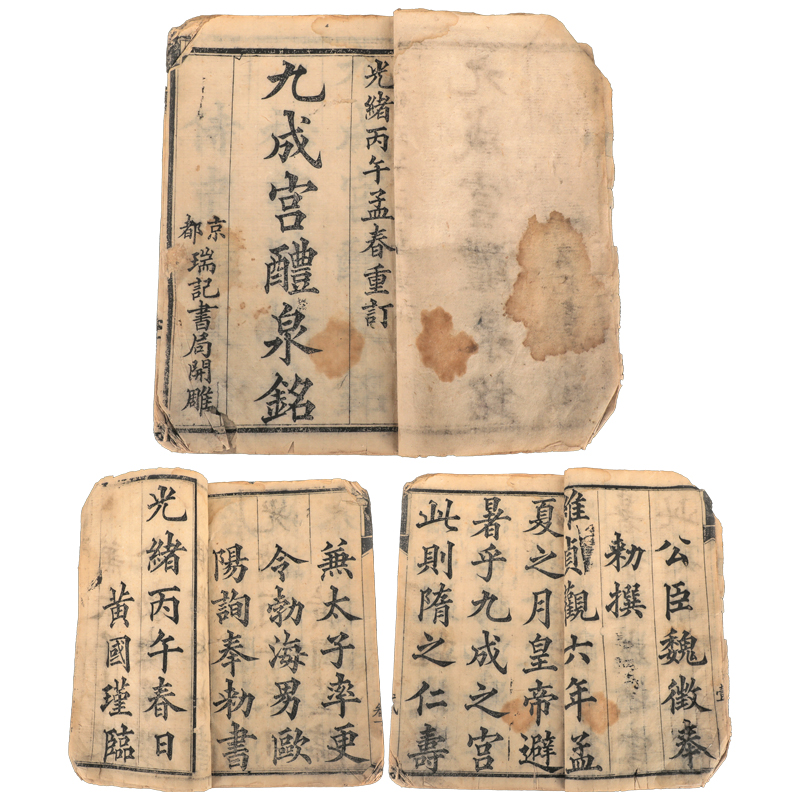 光緒丙午孟春重訂
九成宮醴泉銘
京都
瑞記書局開雕
兼太子率更
令勃海男歐
陽詢奉勑書
光緒丙午春日
黃國瑾臨
公臣魏徵奉
勑撰
維貞觀六年孟
夏之月皇帝避
暑乎九成之宮
此則隋之仁壽